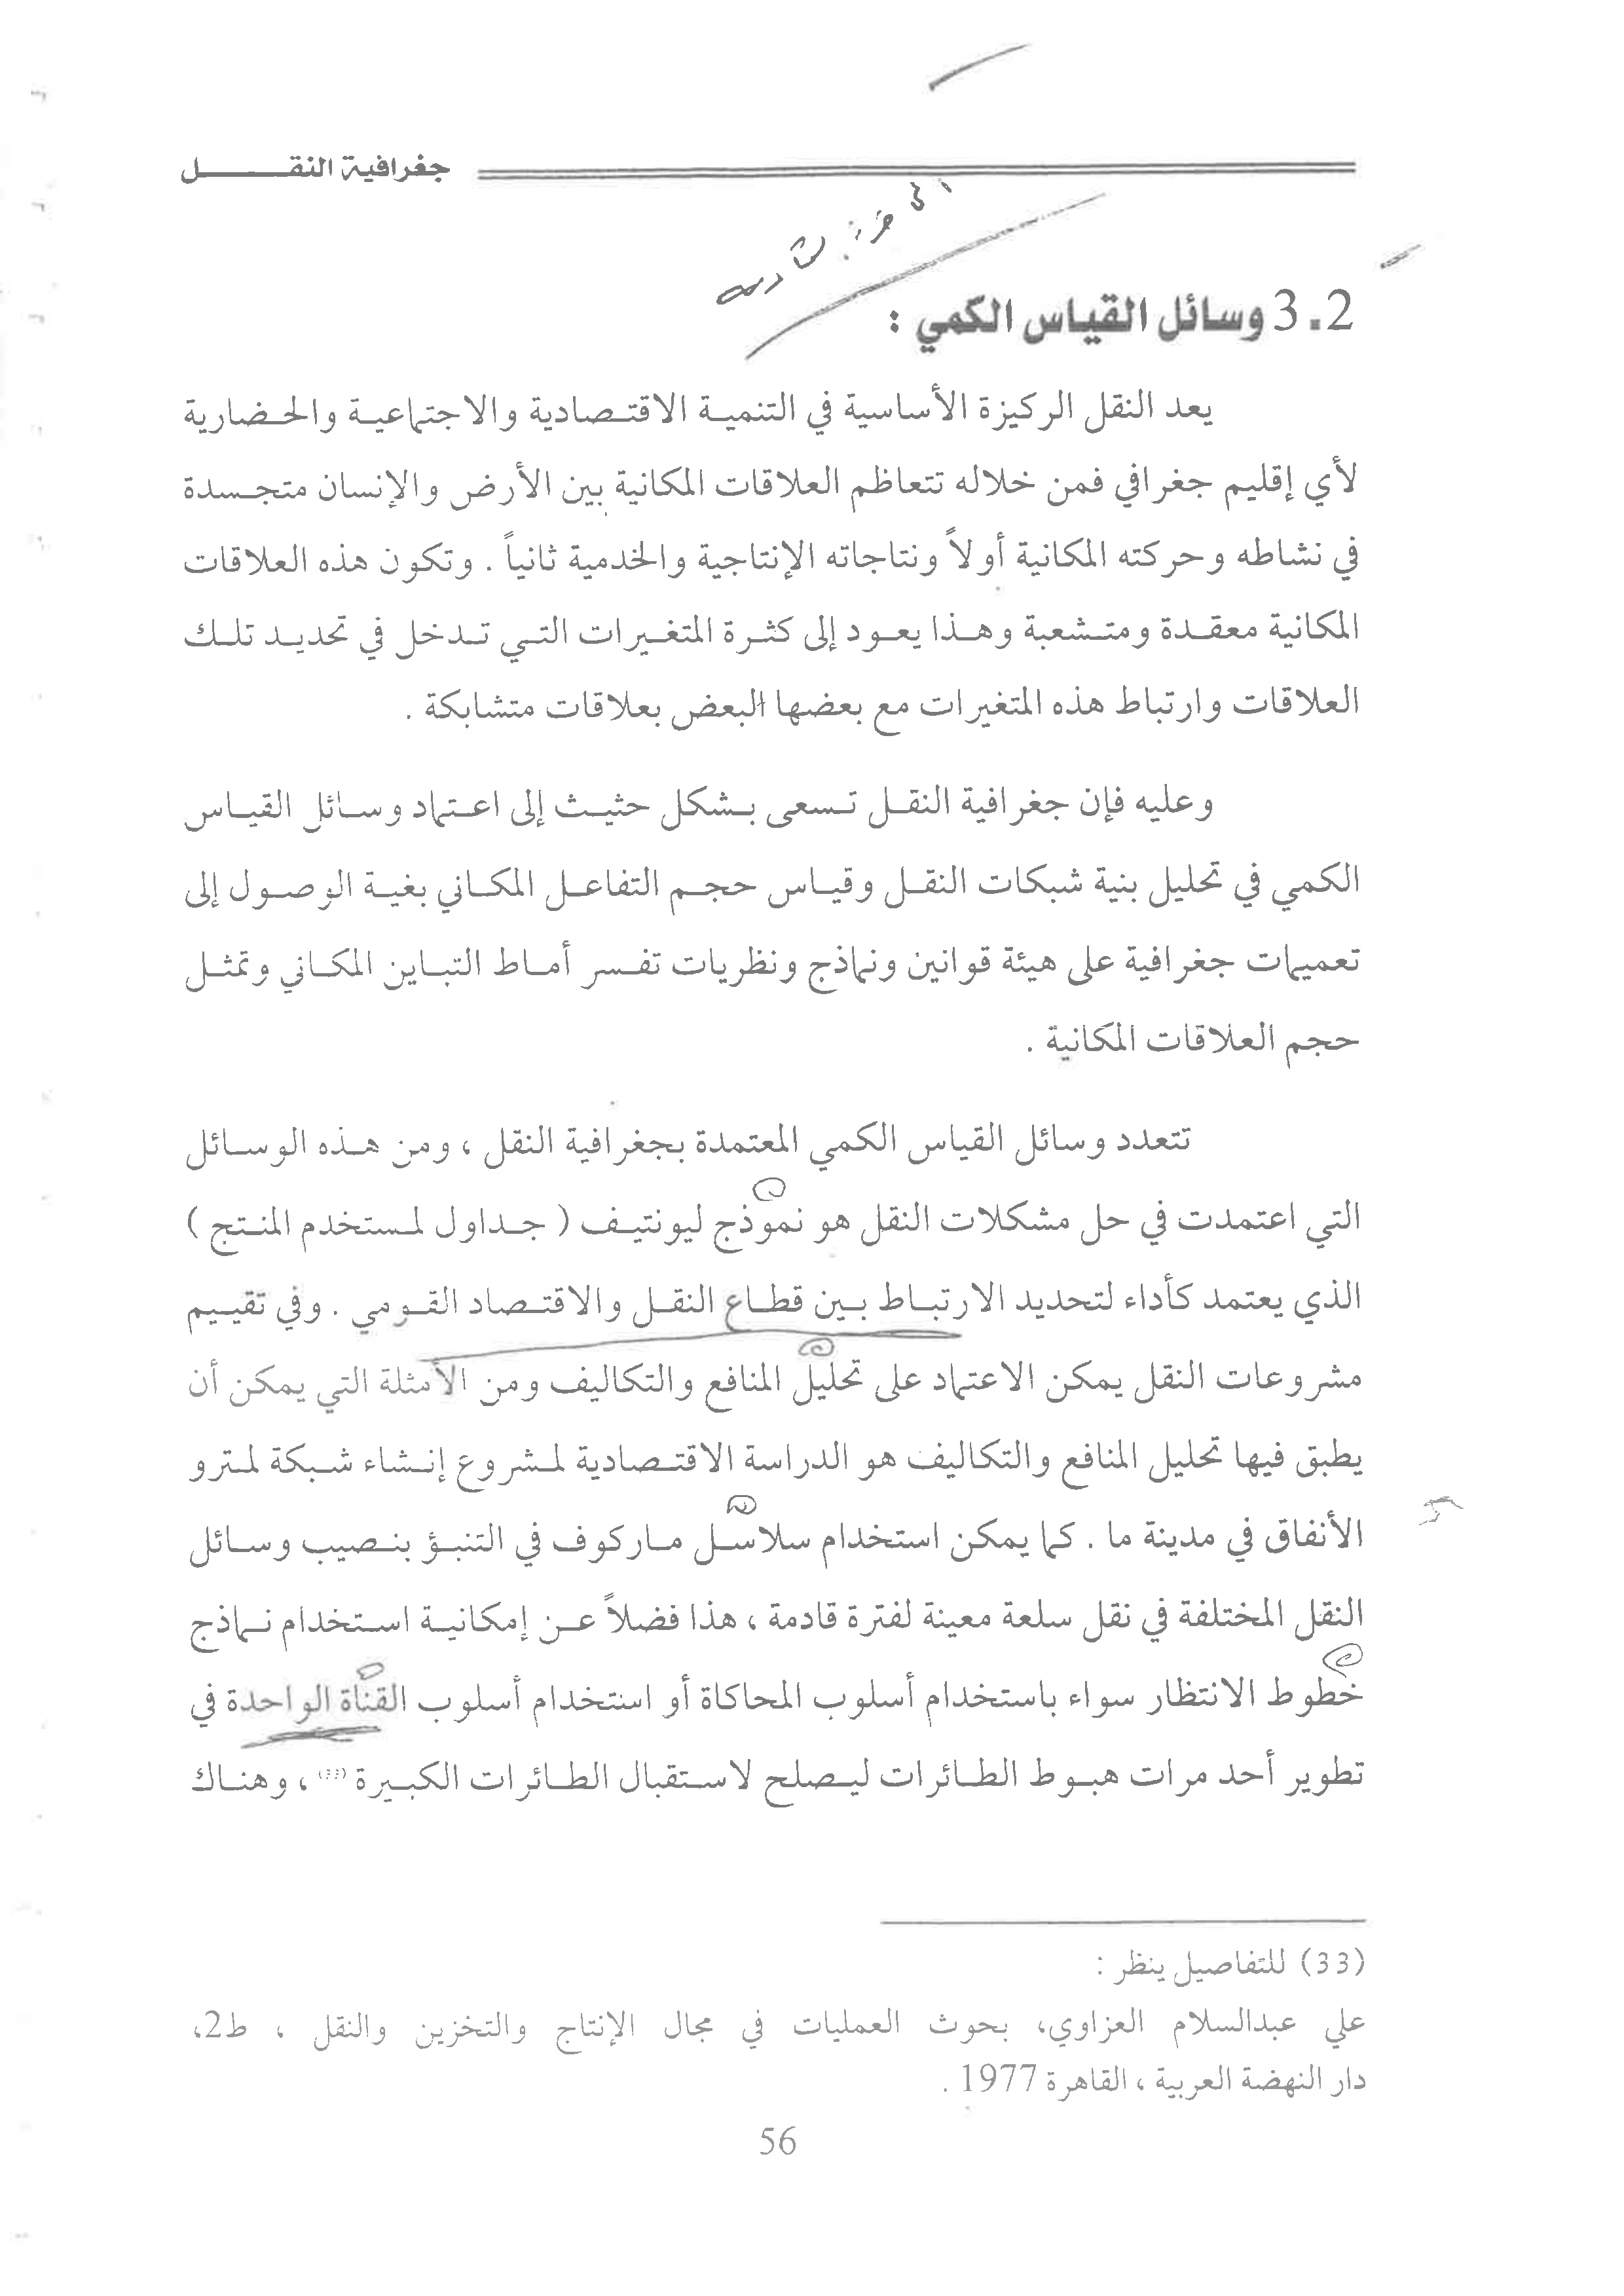 جغرافية النقل
3.2 وسائل القياس الكمي :
يعد النقل الركيزة الأساسية في التنمية الاقتصادية والاجتماعية والحضارية
لأي إقليم جغرافي فمن خلاله تتعاظم العلاقات المكانية بين الأرض والإنسان متجسدة
في نشاطه وحركته المكانية أولاً ونتاجاته الإنتاجية والخدمية ثانياً . وتكون هذه العلاقات
المكانية معقدة ومتشعبة وهذا يعود إلى كثرة المتغيرات التي تدخل في تحديد تلك
العلاقات وارتباط هذه المتغيرات مع بعضها البعض بعلاقات متشابكة .
وعليه فإن جغرافية النقل تسعى بشكل حثيث إلى اعتماد وسائل القياس
الكمي في تحليل بنية شبكات النقل وقياس حجم التفاعل المكاني بغية الوصول إلى
تعميمات جغرافية على هيئة قوانين ونماذج ونظريات تفسر أماط التباين المكاني وتمثل
حجم العلاقات المكانية .
تتعدد وسائل القياس الكمي المعتمدة بجغرافية النقل ، ومن هذه الوسائل
التي اعتمدت في حل مشكلات النقل هو نموذج ليونتيف ( جداول لمستخدم المنتج )
الذي يعتمد كأداء لتحديد الارتباط بين قطاع النقل والاقتصاد القومي . وفي تقييم
مشروعات النقل يمكن الاعتماد على تحليل المنافع والتكاليف ومن الأمثلة التي يمكن أن
يطبق فيها تحليل المنافع والتكاليف هو الدراسة الاقتصادية لمشروع إنشاء شبكة لمترو
الأنفاق في مدينة ما . كما يمكن استخدام سلاسل ماركوف في التنبؤ بنصيب وسائل
النقل المختلفة في نقل سلعة معينة لفترة قادمة ، هذا فضلاً عن إمكانية استخدام نماذج
خطوط الانتظار سواء باستخدام أسلوب المحاكاة أو استخدام أسلوب القناة الواحدة في
تطوير أحد مرات هبوط الطائرات ليصلح لاستقبال الطائرات الكبيرة (33) ، وهناك
(33) للتفاصيل ينظر :
علي عبدالسلام العزاوي، بحوث العمليات في مجال الإنتاج والتخزين والنقل ، ط2،
دار النهضة العربية ، القاهرة 1977 .
56